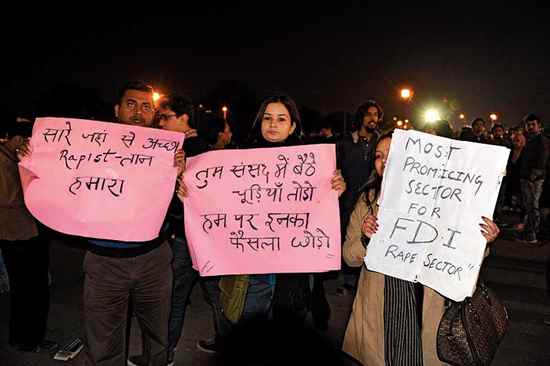 सारे जहां से अच्छा
Rapist-तान
हमारा
तुम संसद में बैठे
चूड़ियाँ तोड़ो
हम पर इनका
फैसला छोड़ो
MOST
PROMICING
SECTOR
FOR
FDI
"RAPE SECTOR"